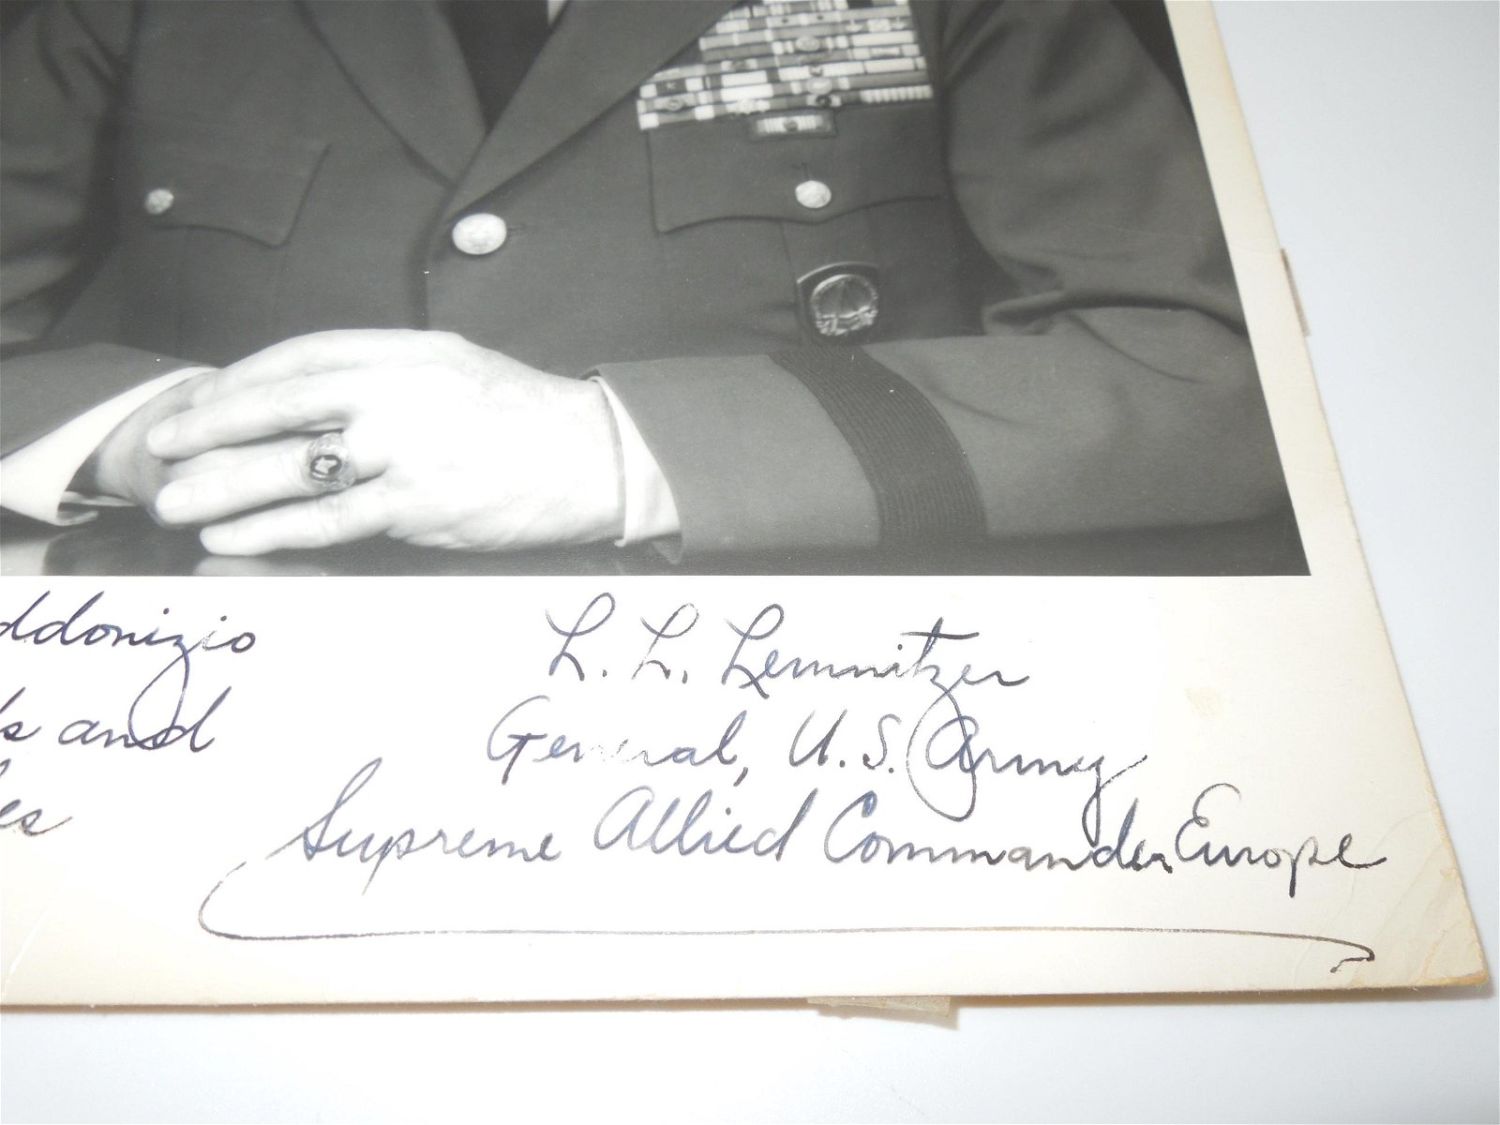 ddonizio
and
es
L. L. Lemnitzer
General, U.S. Army
Supreme Allied Commander Europe